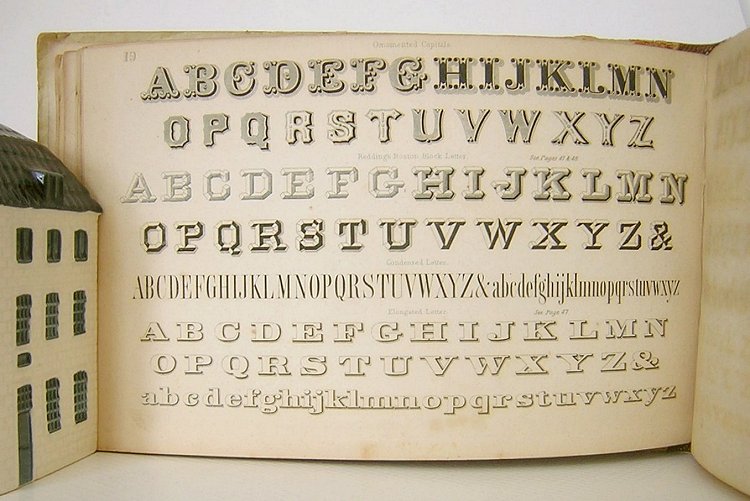 19
Ornamented Capitals.
ABCDEFGHIJKLMN
OPQRSTUVWXYZ
Redding's Boston Block Letter. See Pages 47 & 48
ABCDEFGHIJKLMN
OPQRSTUVWXYZ&
Condensed Letter.
ABCDEFGHIJKLMNOPQRSTUVWXYZ&abcdefghijklmnopqrstuvwxyz
Elongated Letter See Page 47
ABCDEFGHIJKLMN
OPQRSTUVWXYZ&
abcdefghijklmnopqrstuvwxyz